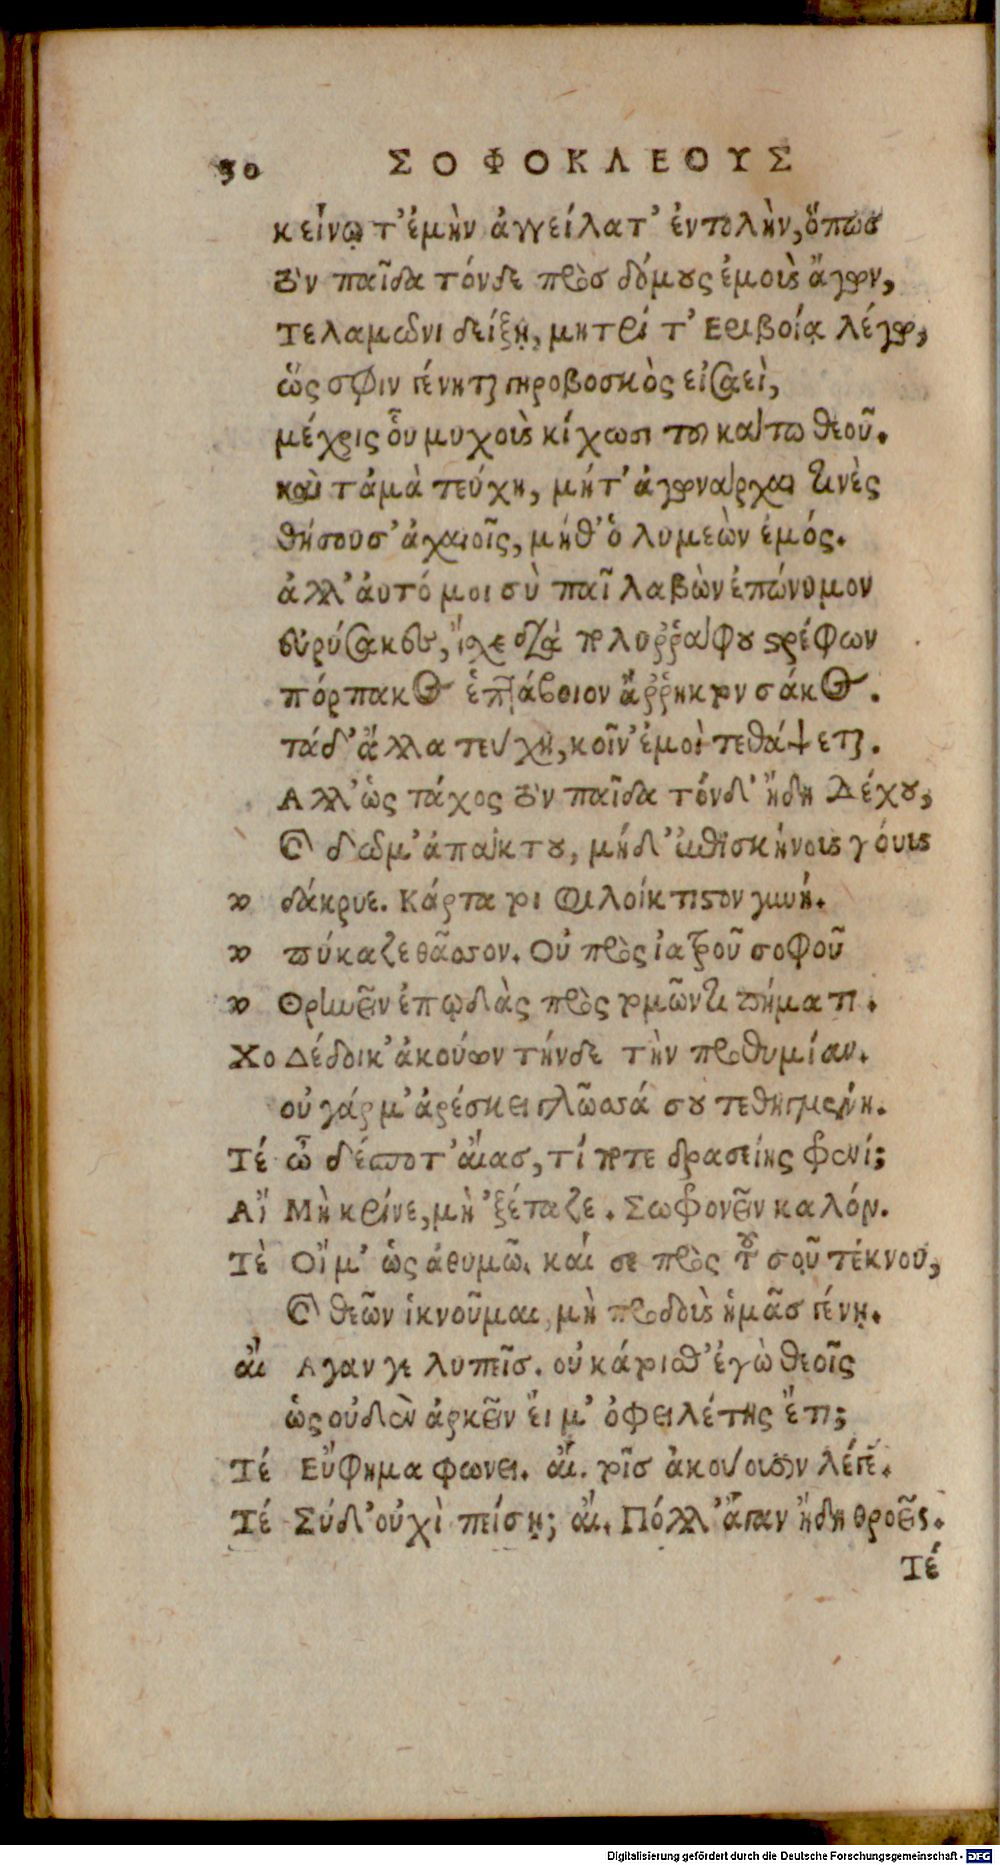 30 ΣΟΦΟΚΛΕΟΥΣ
κείνῳ τ' ἐμὴν ἀγγείλατ' ἐντολὴν, ὅπως
τὸν παῖδα τόνδε πρὸς δόμους ἐμοὺς ἄγων,
Τελαμῶνι δείξῃ, μητρί τ' Εριβοίᾳ λέγω,
ὥς σφιν γένηται γηροβοσκὸς εἰσαεὶ,
μέχρις οὗ μυχοὺς κίχωσι τοῦ κάτω θεοῦ.
καὶ τἀμὰ τεύχη, μήτ' ἀγωνάρχαι τινὲς
θήσουσ' ἀχαιοῖς, μήθ' ὁ λυμεὼν ἐμός.
ἀλλ' ἀυτό μοι σὺ παῖ λαβὼν ἐπώνυμον
εὐρύσακες, ἴσχε διὰ πολυῤῥάφου στρέφων
πόρπακος ἑπτάβοιον ἄῤῥηκτον σάκος.
τάδ' ἄλλα τεύχη, κοῖν' ἐμοὶ τεθάψεται.
Αλλ' ὡς τάχος τὸν παῖδα τόνδ' ἤδη Δέχου,
καὶ δῶμ' ἀπάκτου, μήδ' ἐπισκήνους γόους
δάκρυε. Κάρτα τοι φιλοίκτιστον γυνή.
πύκαζε θᾶσσον. Οὐ πρὸς ἰατροῦ σοφοῦ
Θρηνεῖν ἐπῳδὰς πρὸς τομῶντι πήματι.
Χο Δέδοικ' ἀκούων τήνδε τὴν προθυμίαν.
οὐ γάρ μ' ἀρέσκει γλῶσσά σου τεθηγμένη.
Τέ ὦ δέσποτ' αἴας, τί ποτε δρασείεις φρενί;
Αἴ Μὴ κρίνε, μὴ 'ξέταζε. Σωφρονεῖν καλόν.
Τὲ Οἴμ' ὡς ἀθυμῶ. καί σε πρὸς τοῦ σοῦ τέκνου,
καὶ θεῶν ἱκνοῦμαι, μὴ προδοὺς ἡμᾶς γένῃ.
αἴ Αγαν γε λυπεῖς. οὐ κάτοισθ' ἐγὼ θεοῖς
ὡς οὐδὲν ἀρκεῖν εἴ μ' ὀφειλέτης ἔτι;
Τέ Εὔφημα φώνει. αἴ. τοῖς ἀκούουσιν λέγε.
Τέ Σύδ' οὐχὶ πείσῃ; αἴ. Πόλλ' ἄγαν ἤδη θροεῖς.
Τέ
Digitalisierung gefördert durch die Deutsche Forschungsgemeinschaft - DFG